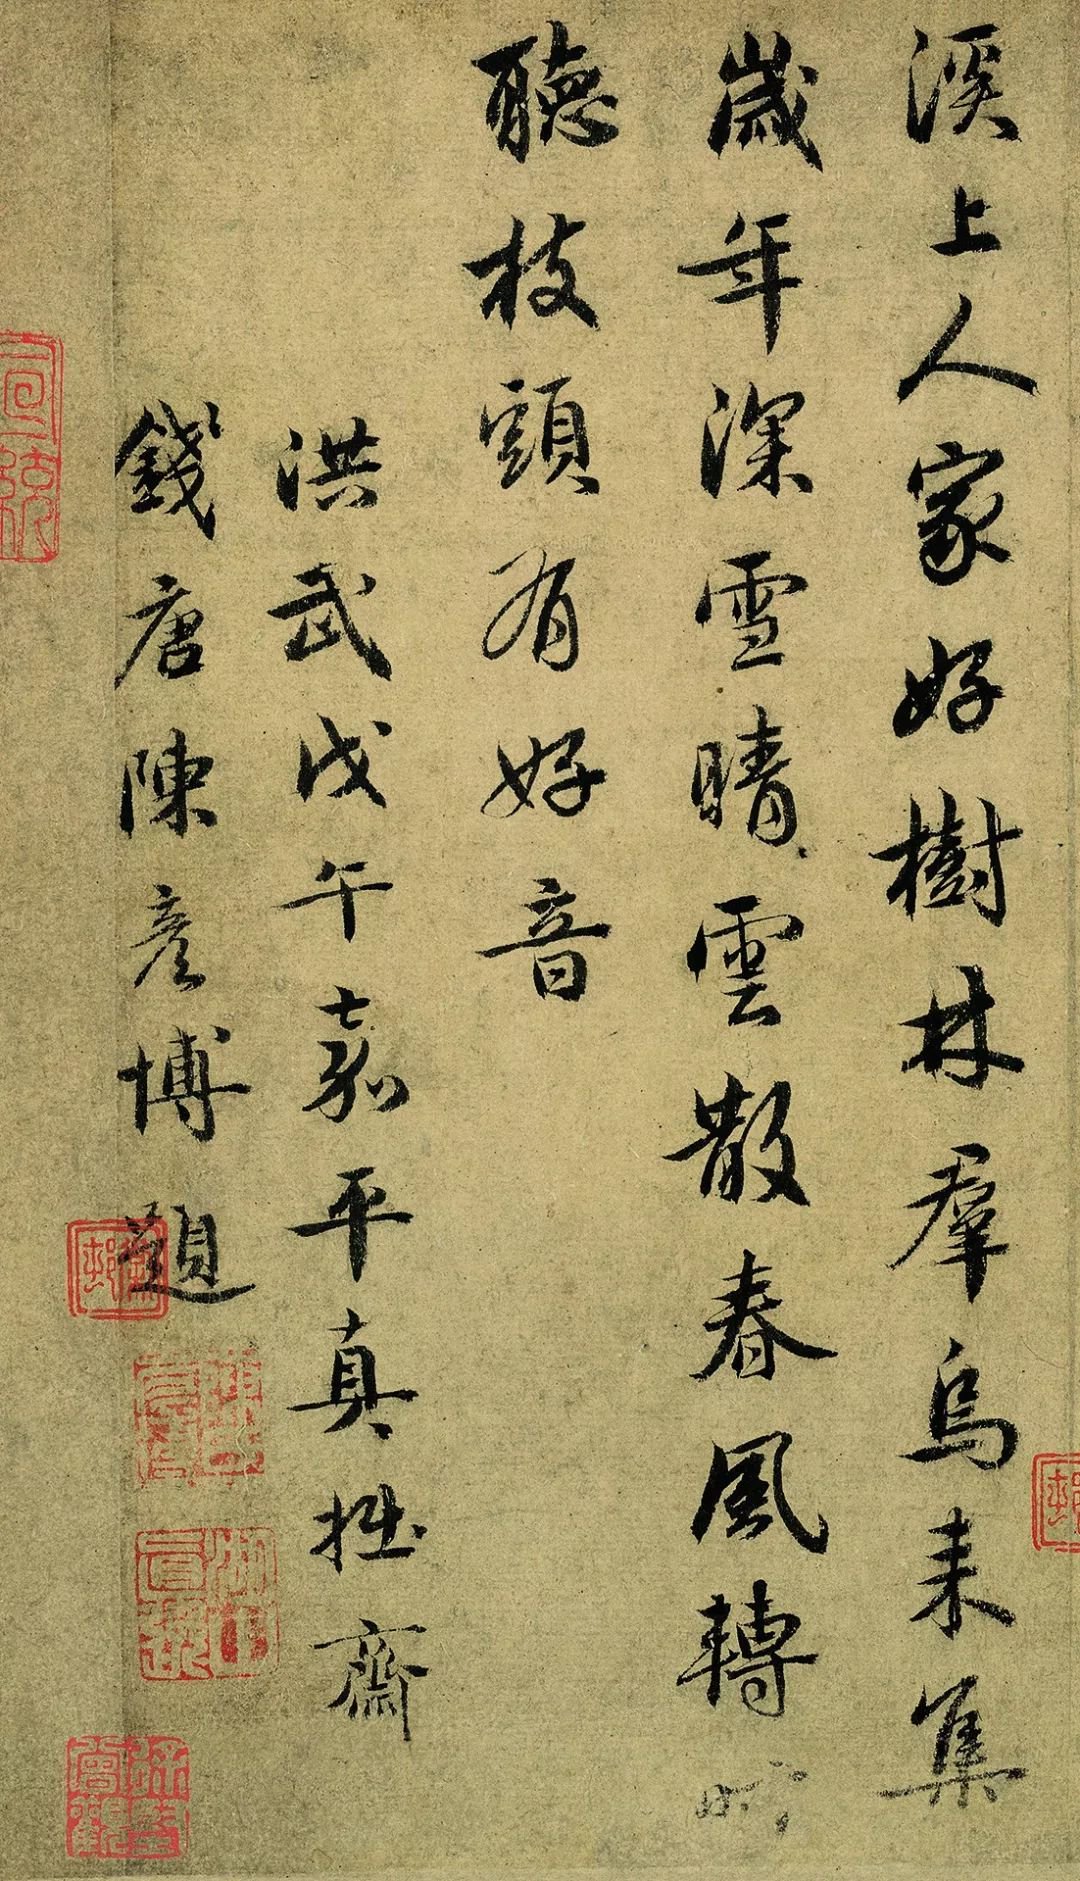 溪上人家好樹林羣烏來集
歲年深雪晴雲散春風轉
聽枝頭有好音
洪武戊午嘉平真拙齋
錢唐陳彦博題